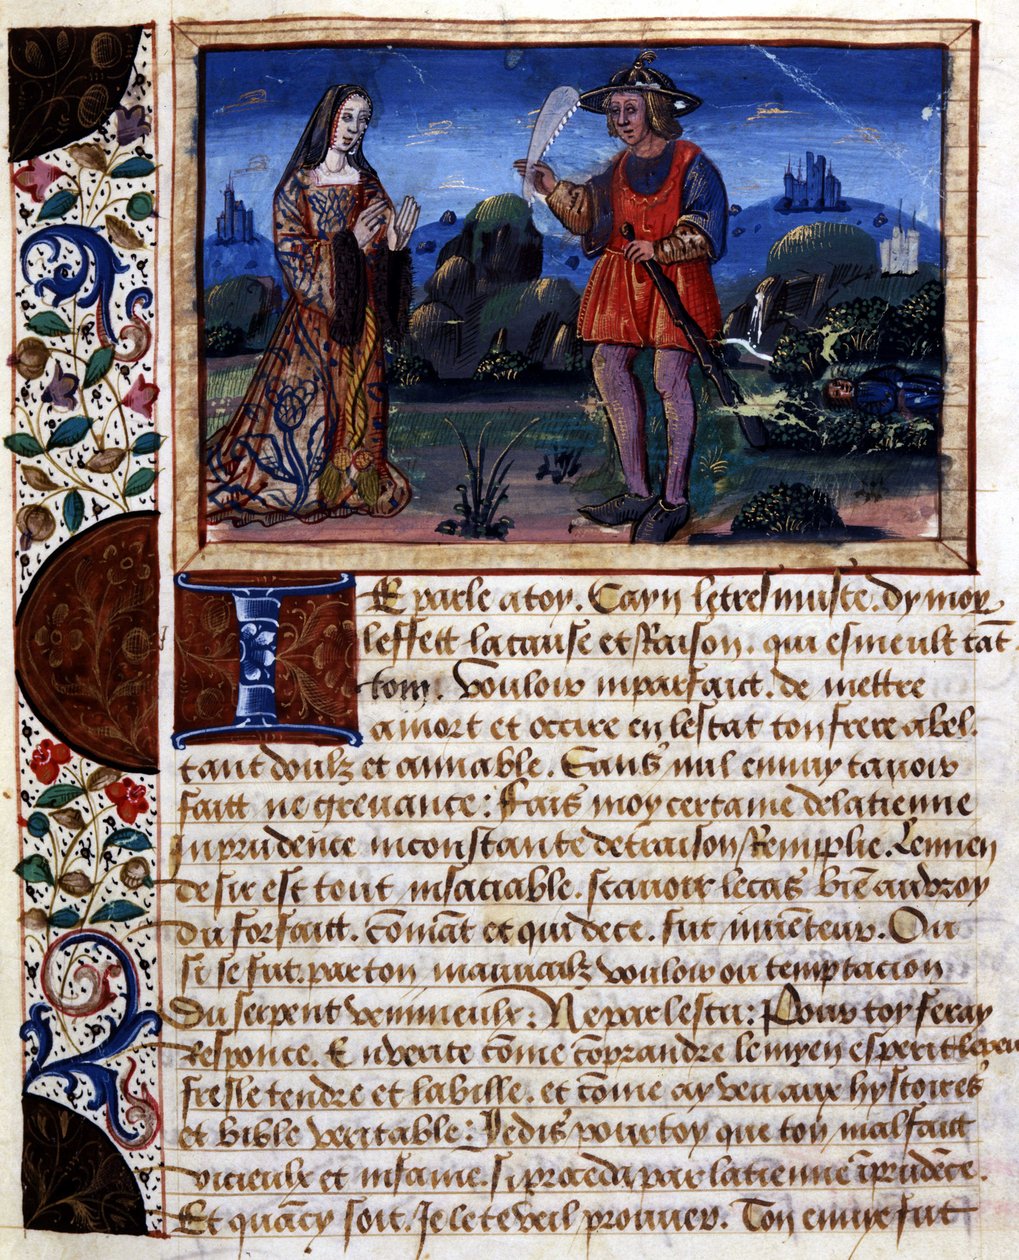 IE parle a toy. Cayn letresinuste. dy moy
leffett la cause et Raison. qui esmeult tāt
ton. Vouloir inparfaict. de mettre
a mort et occire en lestat ton frere abel.
tant doulz et amiable. Sans nul ennuy tavoir
faitt ne grevance: Fais moy certaine de la tienne
Inprudence inconstante de traison Remplie. Lemien
desir est tout insaciable. scavoir le cas bien au vroy
Du forfaitt. cōmāt et qui de ce. fut invēteur. Ou
si se fut. par ton mauvailz vouloir ou temptacion
Du serpent vennineulx: Ne par lestu: Pour toy feray
Responce. En verite cōme cōprandre le myen esperit
fresle tendre et labille. et cōme ay veu aux hystoires
et bible veritable: Je dis pour toy que ton malfaitt
vicieulx et infame. si proceda par la tienne īprudēce.
Et quācy soit. Je le te veil prouver. Ton envye fut